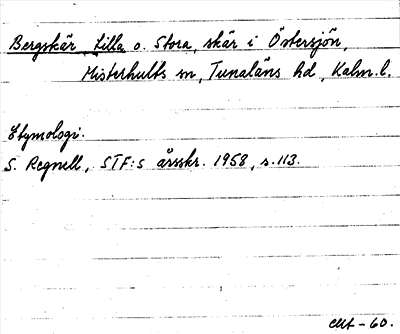 Bergskär, Lilla o. Stora, skär i Östersjön,
Misterhults sn, Tunaläns hd, Kalm. l.
Etymologi.
S. Regnell, STF:s årsskr. 1958, s. 113.
-60.